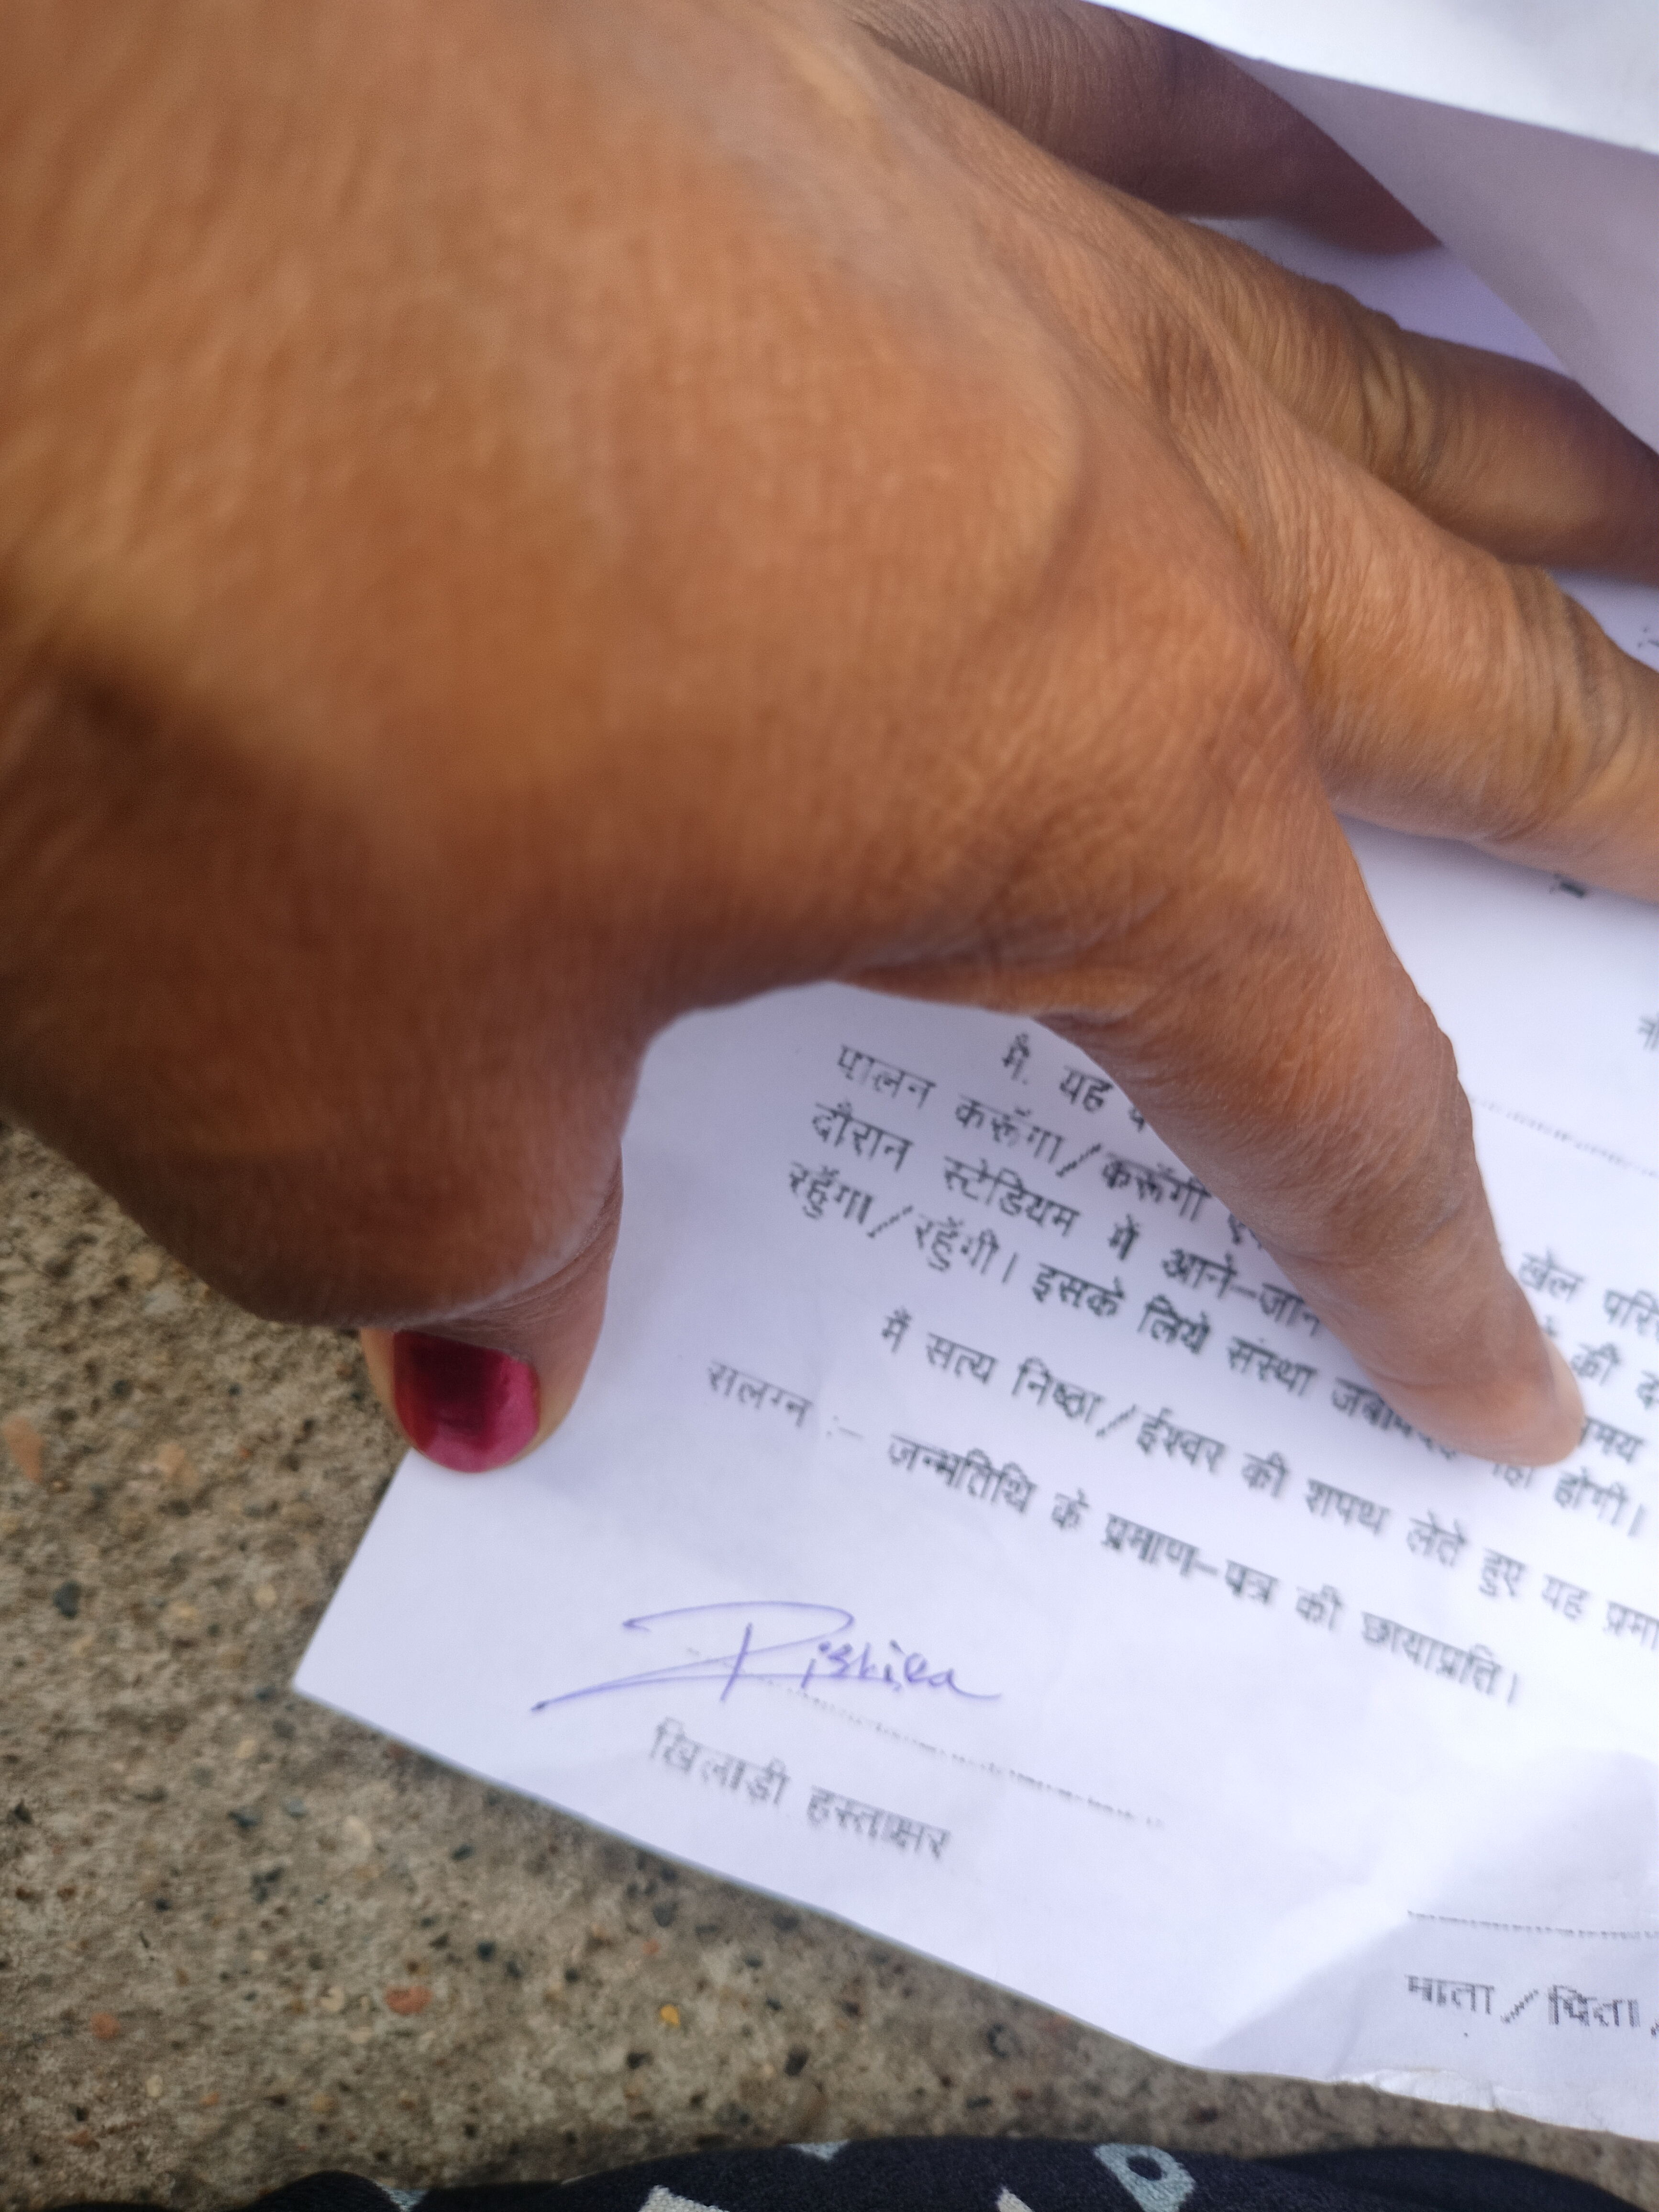 मैं यह
पालन करूँगा/करूँगी खेल
दौरान स्टेडियम में आने-जाने की
रहूँगा/रहूँगी। इसके लिये संस्था होगी।
मैं सत्य निष्ठा/ईश्वर की शपथ लेते हुए यह
सलग्न :- जन्मतिथि के प्रमाण-पत्र की छायाप्रति।
Rishika
खिलाड़ी हस्ताक्षर
माता/पिता/